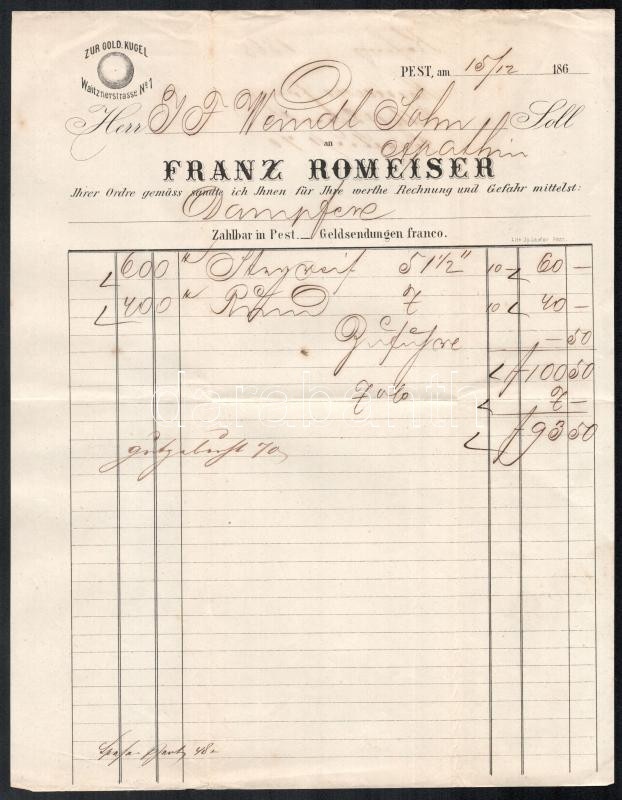 ZUR GOLD. KUGEL
Waitznerstrasse Nº 1
PEST, am 15/12 186
Herr J F Weindl Sohn Soll
Apathin
an
FRANZ ROMEISER
Ihrer Ordre gemäss sandte ich Ihnen für Ihre werthe Rechnung und Gefahr mittelst:
Zahlbar in Pest. — Geldsendungen franco.
600 " 5 1½" 10 - 60 -
400 " 7 10 40 -
Zufuhre - 50
f 100 50
7 % 7 -
f 93 50
darabanth